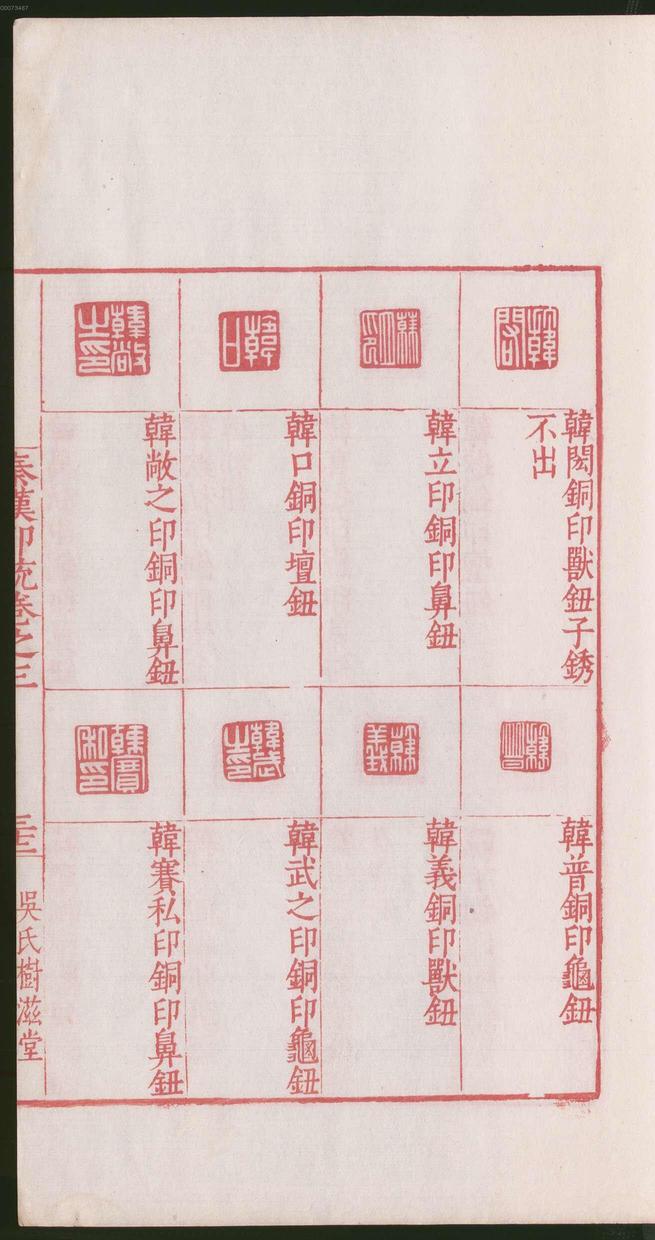 韓閎銅印獸鈕子銹
不出
韓立印銅印鼻鈕
韓口銅印壇鈕
韓敞之印銅印鼻鈕
韓普銅印龜鈕
韓義銅印獸鈕
韓武之印銅印龜鈕
韓賽私印銅印鼻鈕
秦漢印統卷之三
吳氏樹滋堂
00073467